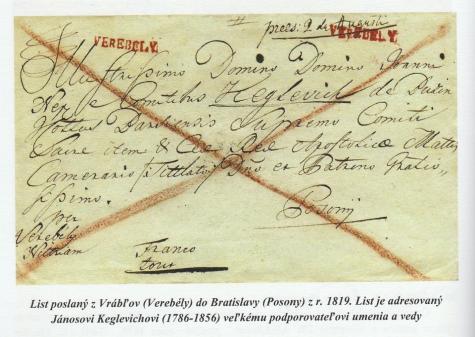 praes: 9 de Augusti
VEREBELY.
VEREBELY.
Illustrissimo Domino Domino Joanni
Nep. e Comitibus Keglevich de Buzin
Supremo Comiti
Sacre item & Cae Reg Apostolicæ Mattis
Camerario Dño et Patrono Gratio,,
sissimo.
per
Verebély
Nittriam
Posony
Franco
tout
List poslaný z Vrábľov (Verebély) do Bratislavy (Posony) z r. 1819. List je adresovaný
Jánosovi Keglevichovi (1786-1856) veľkému podporovateľovi umenia a vedy